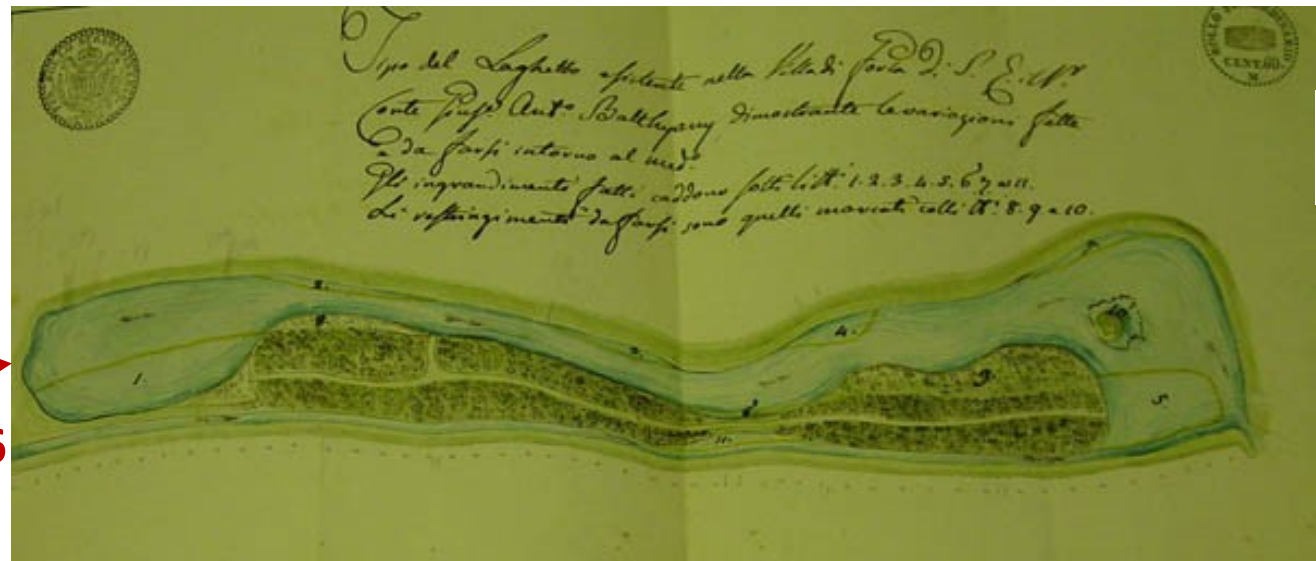 Tipo del Laghetto esistente nella Villa di Forta di S. E. il Sr
Conte Antº Batthyany dimostrante le variazioni fatte
e da farsi intorno al medº
Gli ingrandimenti fatti caddono sotto li Nº 1. 2. 3. 4. 5. 6 7 ed 11.
Li restringimenti da farsi sono quelli marcati colli Nº 8. 9 e 10.
CENT. 60.
M
2.
4.
3.
9.
1.
5.
11.
6